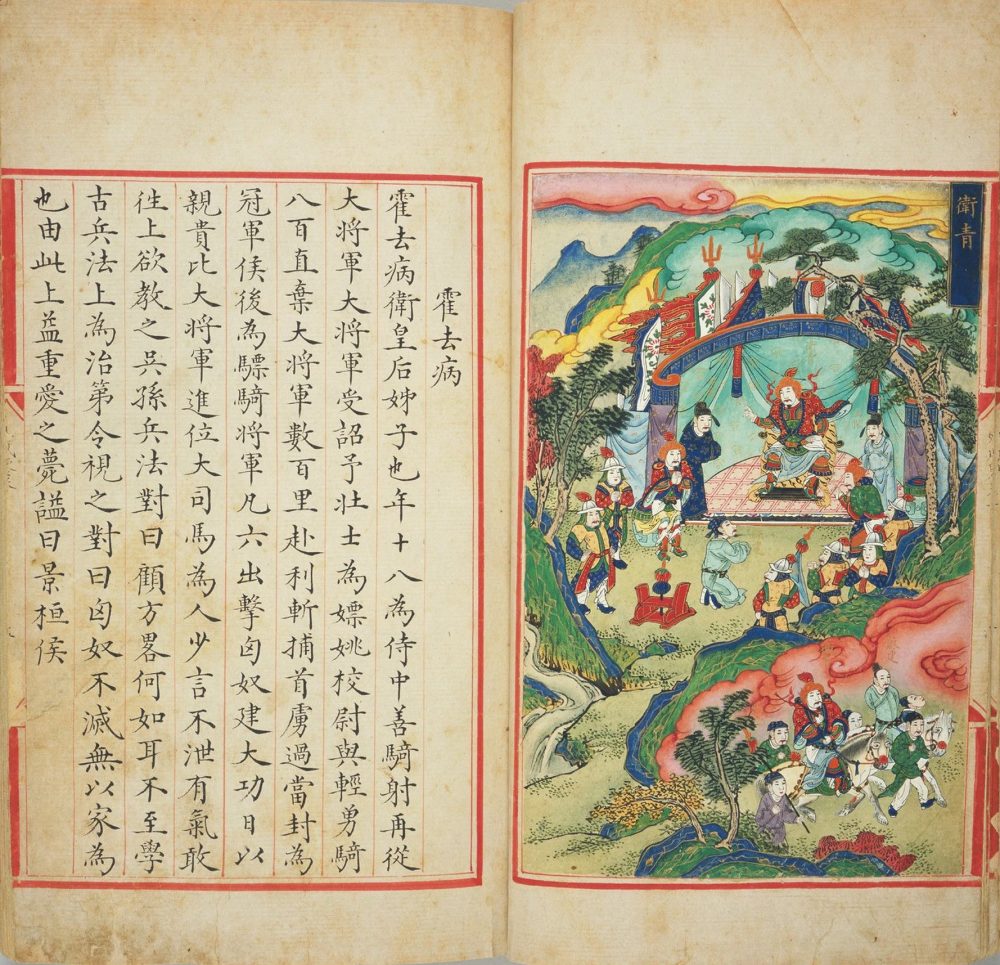 衛青
霍去病
霍去病衛皇后姊子也年十八為侍中善騎射再從
大將軍大將軍受詔予壯士為嫖姚校尉與輕勇騎
八百直棄大將軍數百里赴利斬捕首虜過當封為
冠軍侯後為驃騎將軍凡六出擊匈奴建大功日以
親貴比大將軍進位大司馬為人少言不泄有氣敢
徃上欲教之吳孫兵法對曰顧方畧何如耳不至學
古兵法上為治第令視之對曰匈奴不滅無以家為
也由此上益重愛之薨諡曰景桓侯